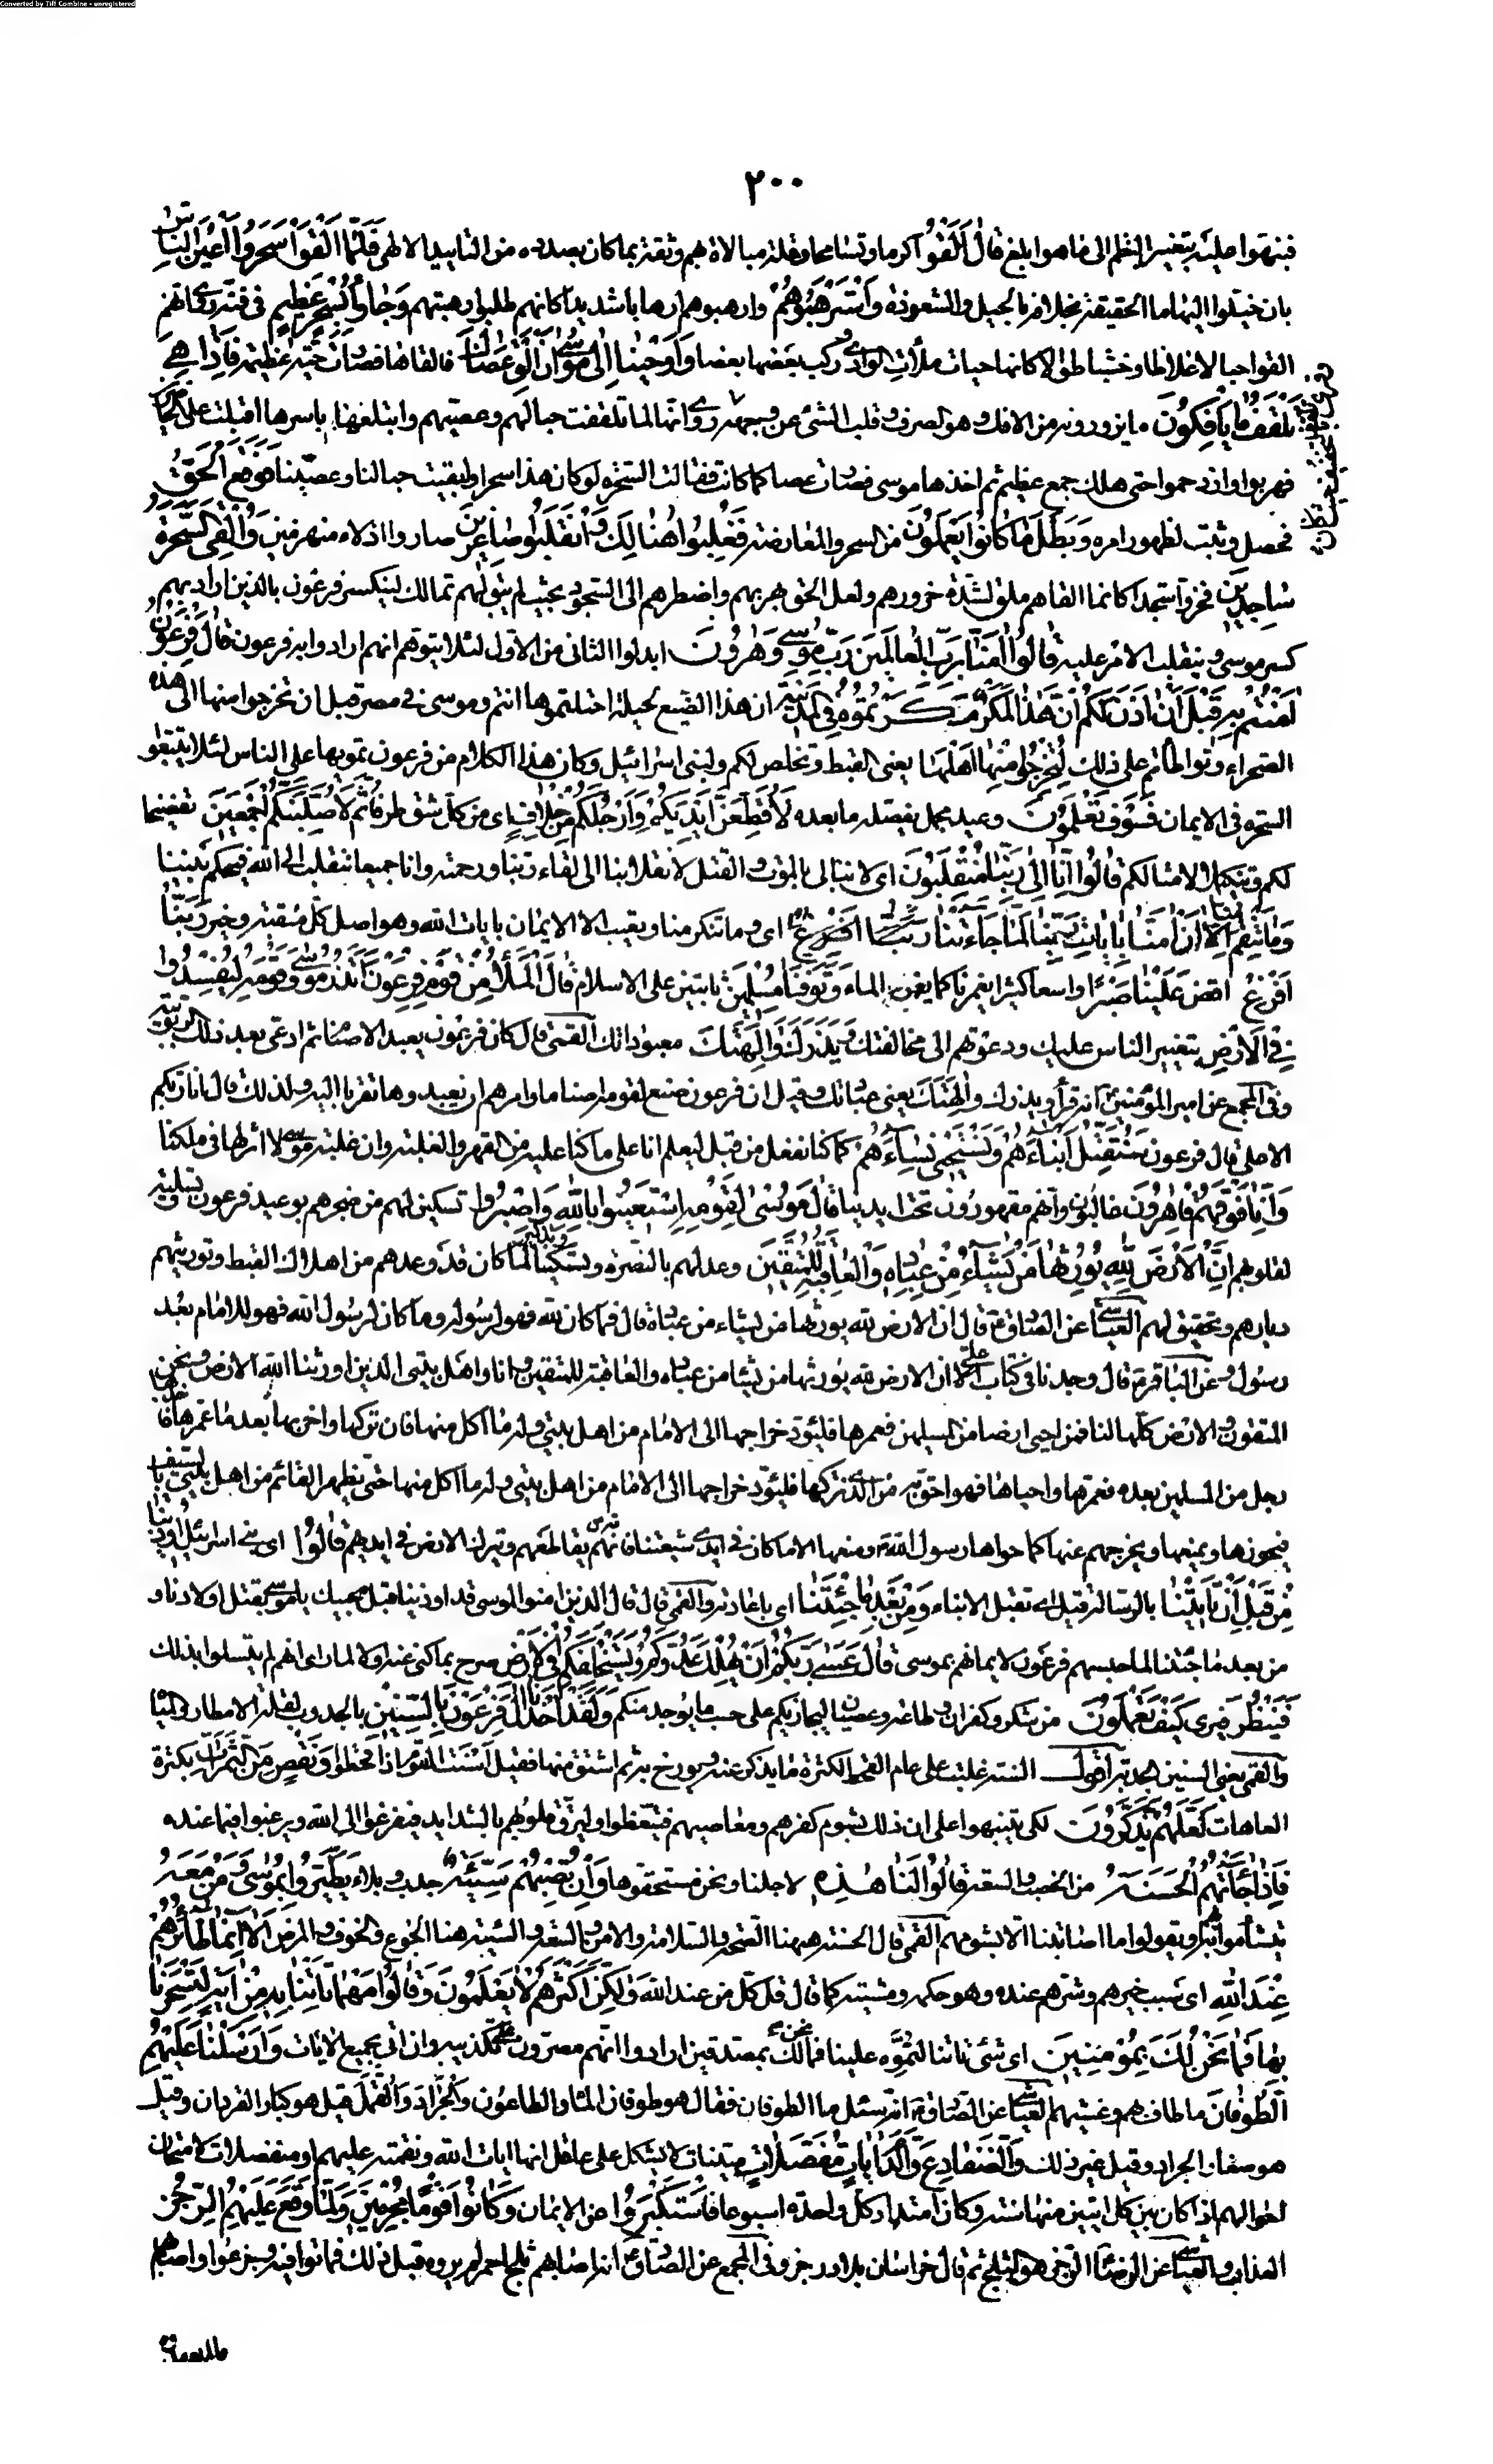 Converted by Tiff Combine - unregistered
٢٠٠
فنبهوا عليه بتغيير النظم الى ما هو ابلغ قَالَ أَلْقُوا كرما وتسامحا وقلة مبالاة بهم وثقة بما كان بصدده من التاييد الالهى فَلَمَّا أَلْقَوْا سَحَرُوا أَعْيُنَ النَّاسِ
بان خيلوا اليها ما الحقيقة بخلافه بالحيل والشعوذة وَاسْتَرْهَبُوهُمْ وارهبوهم ارهابا شديدا كانهم طلبوا رهبتهم وَجَاؤُ بِسِحْرٍ عَظِيمٍ فى فنه روى انهم
القوا حبالا غلاظا وخشبا طوالا كانها حيات ملأت الوادى وركب بعضها بعضا وَأَوْحَيْنَا إِلَى مُوسَى أَنْ أَلْقِ عَصَاكَ فالقاها فصارت حية عظيمة فَإِذَا هِيَ
تَلْقَفُ مَا يَأْفِكُونَ ما يزورونه من الافك وهو الصرف وقلب الشئ عن وجهه روى انها لما تلقفت حبالهم وعصيهم وابتلعتها باسرها اقبلت على الحاضرين
فهربوا وازدحموا حتى هلك جمع عظيم ثم اخذها موسى فصارت عصا كما كانت فقالت السحرة لو كان هذا سحرا لبقيت حبالنا وعصينا فَوَقَعَ الْحَقُّ
فحصل وثبت لظهور امره وَبَطَلَ مَا كَانُوا يَعْمَلُونَ من السحر والمعارضة فَغُلِبُوا هُنَالِكَ وَانْقَلَبُوا صَاغِرِينَ صاروا اذلاء منهزمين وَأُلْقِيَ السَّحَرَةُ
سَاجِدِينَ فخروا سجدا كانما القاهم ملق لشدة خرورهم ولعل الحق بهرهم واضطرهم الى السجود بحيث لم يبق لهم تمالك لينكسر فرعون بالذين اراد بهم
كسر موسى وينقلب الامر عليه قَالُوا آمَنَّا بِرَبِّ الْعَالَمِينَ رَبِّ مُوسَى وَهَارُونَ ابدلوا الثانى من الاول لئلا يتوهم انهم ارادوا به فرعون قَالَ فِرْعَوْنُ
آمَنْتُمْ بِهِ قَبْلَ أَنْ آذَنَ لَكُمْ إِنَّ هَذَا لَمَكْرٌ مَكَرْتُمُوهُ فِي الْمَدِينَةِ ان هذا الصنيع لحيلة احتلتموها انتم وموسى فى مصر قبل ان تخرجوا منها الى هذه
الصحراء وتواطأتم على ذلك لِتُخْرِجُوا مِنْهَا أَهْلَهَا يعنى القبط وتخلص لكم ولبنى اسرائيل وكان هذا الكلام من فرعون تمويها على الناس لئلا يتبعوا
السحرة فى الايمان فَسَوْفَ تَعْلَمُونَ وعيد مجمل يفصله ما بعده لَأُقَطِّعَنَّ أَيْدِيَكُمْ وَأَرْجُلَكُمْ مِنْ خِلَافٍ اى من كل شق طرفا ثُمَّ لَأُصَلِّبَنَّكُمْ أَجْمَعِينَ تفضيحا
لكم وتنكيلا لامثالكم قَالُوا إِنَّا إِلَى رَبِّنَا مُنْقَلِبُونَ اى لا نبالى بالموت والقتل لانقلابنا الى لقاء ربنا ورحمته وانا جميعا ننقلب الى الله فيحكم بيننا
وَمَا تَنْقِمُ مِنَّا إِلَّا أَنْ آمَنَّا بِآيَاتِ رَبِّنَا لَمَّا جَاءَتْنَا اى وما تنكر منا وتعيب الا الايمان بايات الله وهو اصل كل منقبة وخير رَبَّنَا
أَفْرِغْ افض عَلَيْنَا صَبْرًا واسعا كثيرا يغمرنا كما يفرغ الماء وَتَوَفَّنَا مُسْلِمِينَ ثابتين على الاسلام قَالَ الْمَلَأُ مِنْ قَوْمِ فِرْعَوْنَ أَتَذَرُ مُوسَى وَقَوْمَهُ لِيُفْسِدُوا
فِي الْأَرْضِ بتغيير الناس عليك ودعوتهم الى مخالفتك وَيَذَرَكَ وَآلِهَتَكَ معبوداتك القمى قال كان فرعون يعبد الاصنام ثم ادعى بعد ذلك الربوبية
وفى المجمع عن امير المؤمنين انه قرأ ويذرك والهتك يعنى عبادتك وقيل ان فرعون صنع لقومه اصناما وامرهم ان يعبدوها تقربا اليه ولذلك قال انا ربكم
الاعلى قال فرعون سَنُقَتِّلُ أَبْنَاءَهُمْ وَنَسْتَحْيِي نِسَاءَهُمْ كما كنا نفعل من قبل ليعلم انا على ما كنا عليه من القهر والغلبة وان غلبة موسى لا اثر لها فى ملكنا
وَإِنَّا فَوْقَهُمْ قَاهِرُونَ غالبون وانهم مقهورون تحت ايدينا قَالَ مُوسَى لِقَوْمِهِ اسْتَعِينُوا بِاللَّهِ وَاصْبِرُوا تسكين لهم من ضجرهم بوعيد فرعون وتسلية
لقلوبهم إِنَّ الْأَرْضَ لِلَّهِ يُورِثُهَا مَنْ يَشَاءُ مِنْ عِبَادِهِ وَالْعَاقِبَةُ لِلْمُتَّقِينَ وعد لهم بالنصرة وتذكير لما كان قد وعدهم من اهلاك القبط وتوريثهم
ديارهم وتحقيق لهم العياشى عن الصادق قال ان الارض لله يورثها من يشاء من عباده قال فما كان لله فهو لرسوله وما كان لرسول الله فهو للامام بعد
رسول وعن الباقر قال وجدنا فى كتاب على ان الارض لله يورثها من يشاء من عباده والعاقبة للمتقين وانا واهل بيتى الذين اورثنا الله الارض ونحن
المتقون والارض كلها لنا فمن احيى ارضا من المسلمين فعمرها فليؤد خراجها الى الامام من اهل بيتى وله ما اكل منها فان تركها واخربها بعد ما عمرها فاخذها
رجل من المسلمين بعده فعمرها واحياها فهو احق به من الذى تركها فليؤد خراجها الى الامام من اهل بيتى وله ما اكل منها حتى يظهر القائم من اهل بيتى بالسيف
فيحوزها ويمنعها ويخرجهم عنها كما حواها رسول الله ومنعها الا ما كان فى ايدى شيعتنا فانهم يقاطعهم ويترك الارض فى ايديهم قَالُوا اى بنى اسرائيل أُوذِينَا
مِنْ قَبْلِ أَنْ تَأْتِيَنَا بالرسالة قيل اى بقتل الابناء وَمِنْ بَعْدِ مَا جِئْتَنَا اى باعادته والقمى قال قال الذين امنوا لموسى قد اوذينا قبل مجيئك يا موسى بقتل اولادنا و
من بعد ما جئتنا لما حبسهم فرعون لايمانهم بموسى قَالَ عَسَى رَبُّكُمْ أَنْ يُهْلِكَ عَدُوَّكُمْ وَيَسْتَخْلِفَكُمْ فِي الْأَرْضِ صرح بما كنى عنه اولا لما راى انهم لم يتسلوا بذلك
فَيَنْظُرَ فيرى كَيْفَ تَعْمَلُونَ من شكر وكفران وطاعة وعصيان ليجازيكم على حسب ما يوجد منكم وَلَقَدْ أَخَذْنَا آلَ فِرْعَوْنَ بِالسِّنِينَ بالجدوب لقلة الامطار والمياه
والقمى يعنى السنين الجدبة اقول السنة غلبت على عام القحط لكثرة ما يذكر عنه ويورخ به ثم اشتق منها فقيل اسنت القوم اذا قحطوا وَنَقْصٍ مِنَ الثَّمَرَاتِ بكثرة
العاهات لَعَلَّهُمْ يَذَّكَّرُونَ لكى يتنبهوا على ان ذلك بشوم كفرهم ومعاصيهم فيتعظوا وليرق قلوبهم بالشدايد فيفزعوا الى الله ويرغبوا فيما عنده
فَإِذَا جَاءَتْهُمُ الْحَسَنَةُ من الخصب والسعة قَالُوا لَنَا هَذِهِ لاجلنا ونحن مستحقوها وَإِنْ تُصِبْهُمْ سَيِّئَةٌ جدب وبلاء يَطَّيَّرُوا بِمُوسَى وَمَنْ مَعَهُ
يتشأموا بهم ويقولوا ما اصابتنا الا بشومهم القمى قال الحسنة هيهنا الصحة والسلامة والامن والسعة والسيئة هنا الجوع والخوف والمرض أَلَا إِنَّمَا طَائِرُهُمْ
عِنْدَ اللَّهِ اى سبب خيرهم وشرهم عنده وهو حكمه ومشيته كما قال قل كل من عند الله وَلَكِنَّ أَكْثَرَهُمْ لَا يَعْلَمُونَ وَقَالُوا مَهْمَا تَأْتِنَا بِهِ مِنْ آيَةٍ لِتَسْحَرَنَا
بِهَا فَمَا نَحْنُ لَكَ بِمُؤْمِنِينَ اى شئ تاتنا لتموه علينا فما نحن لك بمصدقين ارادوا انهم مصرون على تكذيبه وان اتى بجميع الايات وَأَرْسَلْنَا عَلَيْهِمُ
الطُّوفَانَ ما طاف بهم وغشيهم العياشى عن الصادق انه سئل ما الطوفان فقال هو طوفان الماء والطاعون وَالْجَرَادَ وَالْقُمَّلَ قيل هو كبار القردان وقيل
هو صغار الجراد وقيل غير ذلك وَالضَّفَادِعَ وَالدَّمَ آيَاتٍ مُفَصَّلَاتٍ مبينات لا يشكل على عاقل انها ايات الله ونقمته عليهم او منفصلات لامتحان
احوالهم اذ كان بين كل ايتين منها سنة وكان امتداد كل واحدة اسبوعا فَاسْتَكْبَرُوا عن الايمان وَكَانُوا قَوْمًا مُجْرِمِينَ وَلَمَّا وَقَعَ عَلَيْهِمُ الرِّجْزُ
العذاب والعياشى عن الرضا الرجز هو الثلج ثم قال خراسان بلاد رجز وفى المجمع عن الصادق انه اصابهم ثلج احمر لم يروه قبل ذلك فماتوا فيه وجزعوا واصابهم